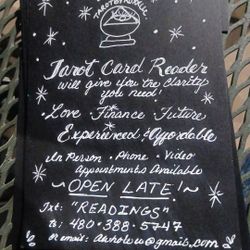 Tarot Card Reader
will give you the clarity
you need!
Love Finance Future
Experienced & Affordable
In Person • Phone • Video
Appointments Available
~ OPEN LATE! ~
Txt: "READINGS"
to: 480·388·5747
or email: @gmail.com